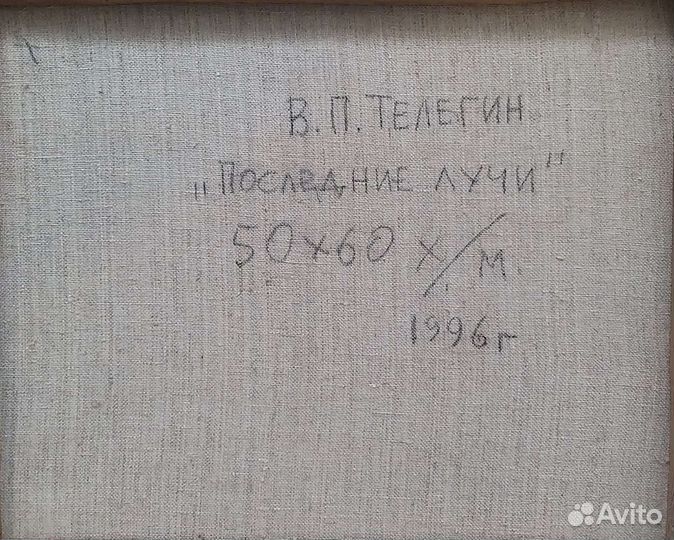 В.П. ТЕЛЕГИН
„ПОСЛЕДНИЕ ЛУЧИ"
50х60 х/м.
1996г
Avito